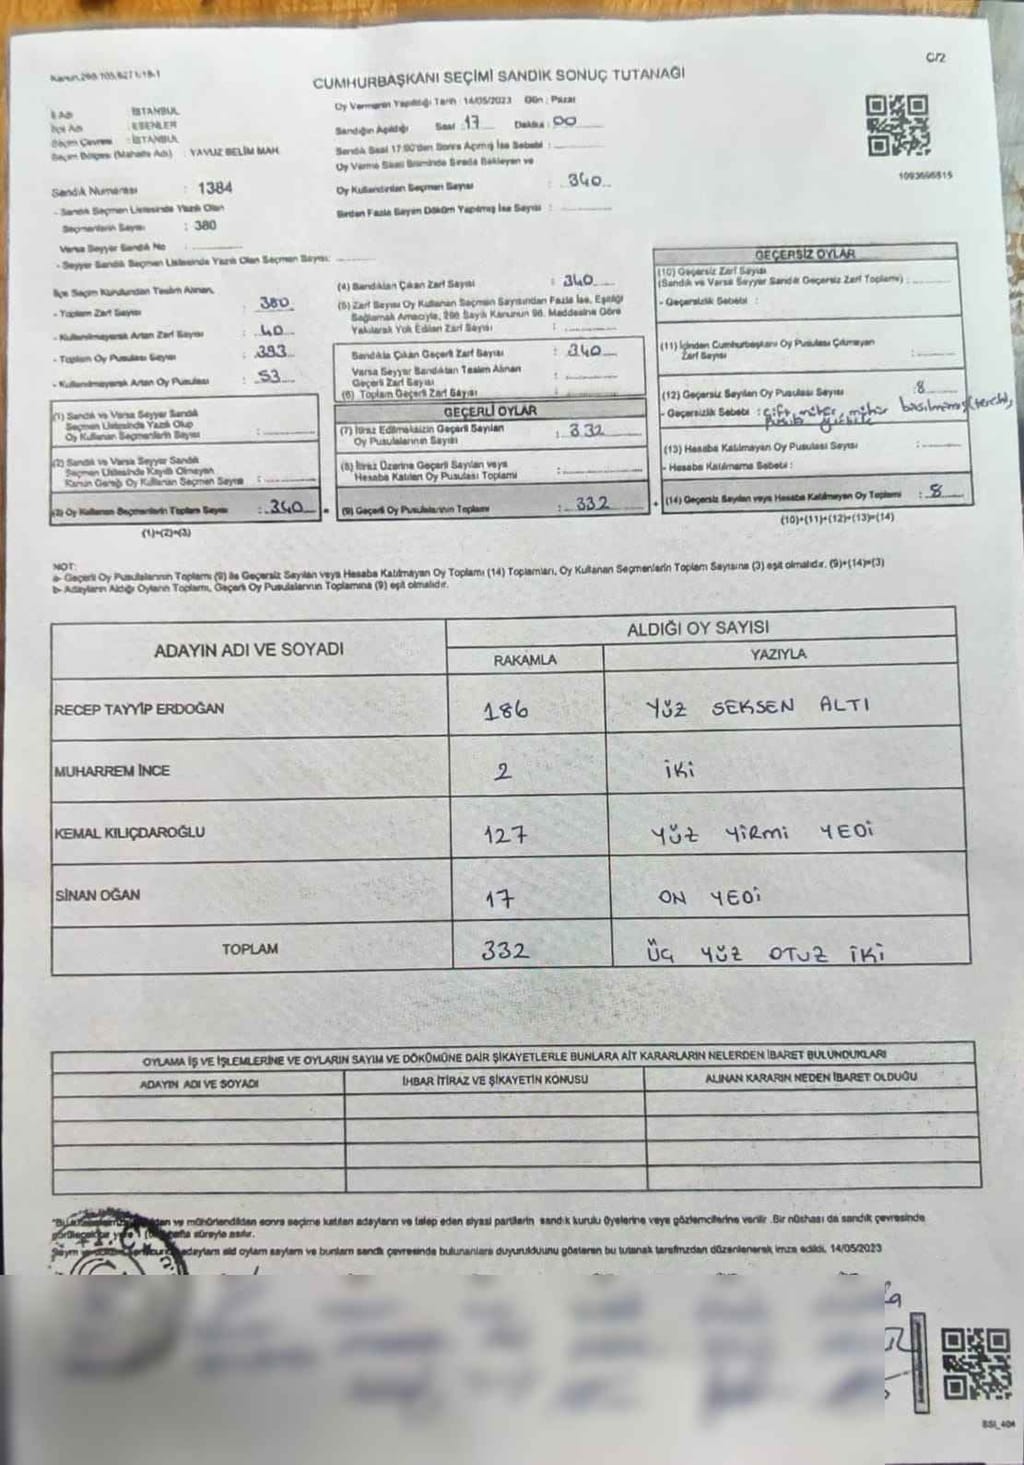 Kanun.298.105.6271/18-1
C/2
CUMHURBAŞKANI SEÇİMİ SANDIK SONUÇ TUTANAĞI
İl Adı : İSTANBUL
İlçe Adı : ESENLER
Seçim Çevresi : İSTANBUL
Seçim Bölgesi (Mahalle Adı) : YAVUZ SELİM MAH.
Sandık Numarası : 1384
- Sandık Seçmen Listesinde Yazılı Olan
Seçmenlerin Sayısı : 380
Varsa Seyyar Sandık No :
- Seyyar Sandık Seçmen Listesinde Yazılı Olan Seçmen Sayısı:
Oy Vermenin Yapıldığı Tarih : 14/05/2023 Gün : Pazar
Sandığın Açıldığı Saat : 17 Dakika : 00
Sandık Saat 17:00'den Sonra Açılmış İse Sebebi :
Oy Verme Saati Bitiminde Sırada Bekleyen ve
Oy Kullandırılan Seçmen Sayısı : 340
Birden Fazla Sayım Döküm Yapılmış İse Sayısı :
1093696815
İlçe Seçim Kurulundan Teslim Alınan,
- Toplam Zarf Sayısı : 380
- Kullanılmayarak Artan Zarf Sayısı : 40
- Toplam Oy Pusulası Sayısı : 393
- Kullanılmayarak Artan Oy Pusulası : 53
(1) Sandık ve Varsa Seyyar Sandık
Seçmen Listesinde Yazılı Olup
Oy Kullanan Seçmenlerin Sayısı :
(2) Sandık ve Varsa Seyyar Sandık
Seçmen Listesinde Kayıtlı Olmayan
Kanun Gereği Oy Kullanan Seçmen Sayısı :
(3) Oy Kullanan Seçmenlerin Toplam Sayısı : 340
(1)+(2)=(3)
(4) Sandıktan Çıkan Zarf Sayısı : 340
(5) Zarf Sayısı Oy Kullanan Seçmen Sayısından Fazla İse, Eşitliği
Sağlamak Amacıyla, 298 Sayılı Kanunun 98. Maddesine Göre
Yakılarak Yok Edilen Zarf Sayısı :
Sandıkta Çıkan Geçerli Zarf Sayısı : 340
Varsa Seyyar Sandıktan Teslim Alınan
Geçerli Zarf Sayısı :
(6) Toplam Geçerli Zarf Sayısı :
GEÇERLİ OYLAR
(7) İtiraz Edilmeksizin Geçerli Sayılan
Oy Pusulalarının Sayısı : 332
(8) İtiraz Üzerine Geçerli Sayılan veya
Hesaba Katılan Oy Pusulası Toplamı :
(9) Geçerli Oy Pusulalarının Toplamı : 332
GEÇERSİZ OYLAR
(10) Geçersiz Zarf Sayısı
(Sandık ve Varsa Seyyar Sandık Geçersiz Zarf Toplamı) :
- Geçersizlik Sebebi :
(11) İçinden Cumhurbaşkanı Oy Pusulası Çıkmayan
Zarf Sayısı :
(12) Geçersiz Sayılan Oy Pusulası Sayısı : 8
- Geçersizlik Sebebi : Çift mühür, mühür basılmamış (tercih),
(13) Hesaba Katılmayan Oy Pusulası Sayısı :
- Hesaba Katılmama Sebebi :
(14) Geçersiz Sayılan veya Hesaba Katılmayan Oy Toplamı : 8
(10)+(11)+(12)+(13)=(14)
NOT:
a- Geçerli Oy Pusulalarının Toplamı (9) ile Geçersiz Sayılan veya Hesaba Katılmayan Oy Toplamı (14) Toplamları, Oy Kullanan Seçmenlerin Toplam Sayısına (3) eşit olmalıdır. (9)+(14)=(3)
b- Adayların Aldığı Oyların Toplamı, Geçerli Oy Pusulalarının Toplamına (9) eşit olmalıdır.
ADAYIN ADI VE SOYADI
ALDIĞI OY SAYISI
RAKAMLA YAZIYLA
RECEP TAYYİP ERDOĞAN 186 YÜZ SEKSEN ALTI
MUHARREM İNCE 2 İKİ
KEMAL KILIÇDAROĞLU 127 YÜZ YİRMİ YEDİ
SİNAN OĞAN 17 ON YEDİ
TOPLAM 332 ÜÇ YÜZ OTUZ İKİ
OYLAMA İŞ VE İŞLEMLERİNE VE OYLARIN SAYIM VE DÖKÜMÜNE DAİR ŞİKAYETLERLE BUNLARA AİT KARARLARIN NELERDEN İBARET BULUNDUKLARI
ADAYIN ADI VE SOYADI İHBAR İTİRAZ VE ŞİKAYETİN KONUSU ALINAN KARARIN NEDEN İBARET OLDUĞU
ve mühürlendikten sonra seçime katılan adayların ve talep eden siyasi partilerin sandık kurulu üyelerine veya gözlemcilerine verilir .Bir nüshası da sandık çevresinde
süreyle asılır.
adayların aldıkları oyların sayıları ve bunların sandık çevresinde bulunanlara duyurulduğunu gösteren bu tutanak tarafımızdan düzenlenerek imza edildi. 14/05/2023
SSI_404